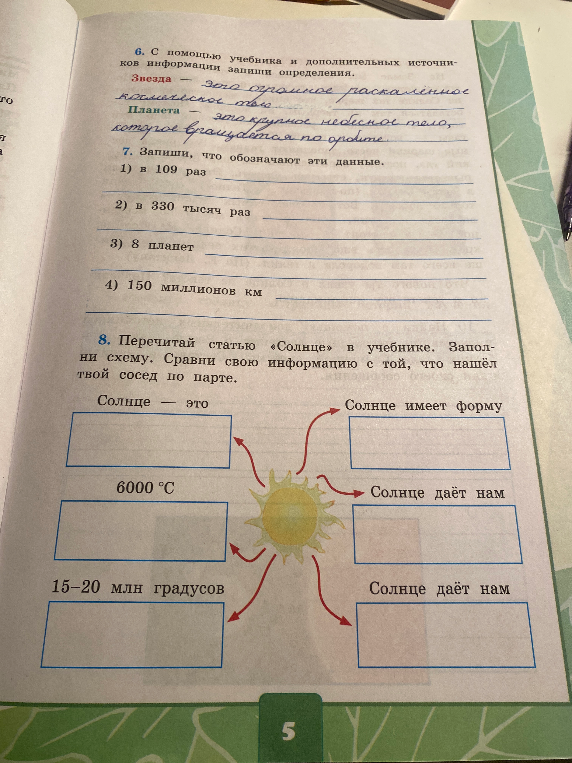 6. С помощью учебника и дополнительных источни-
ков информации запиши определения.
Звезда — это огромное раскалённое
космическое тело
Планета — это крупное небесное тело,
которое вращается по орбите.
7. Запиши, что обозначают эти данные.
1) в 109 раз
2) в 330 тысяч раз
3) 8 планет
4) 150 миллионов км
8. Перечитай статью «Солнце» в учебнике. Запол-
ни схему. Сравни свою информацию с той, что нашёл
твой сосед по парте.
Солнце — это
Солнце имеет форму
6000 °С
Солнце даёт нам
15–20 млн градусов
Солнце даёт нам
5